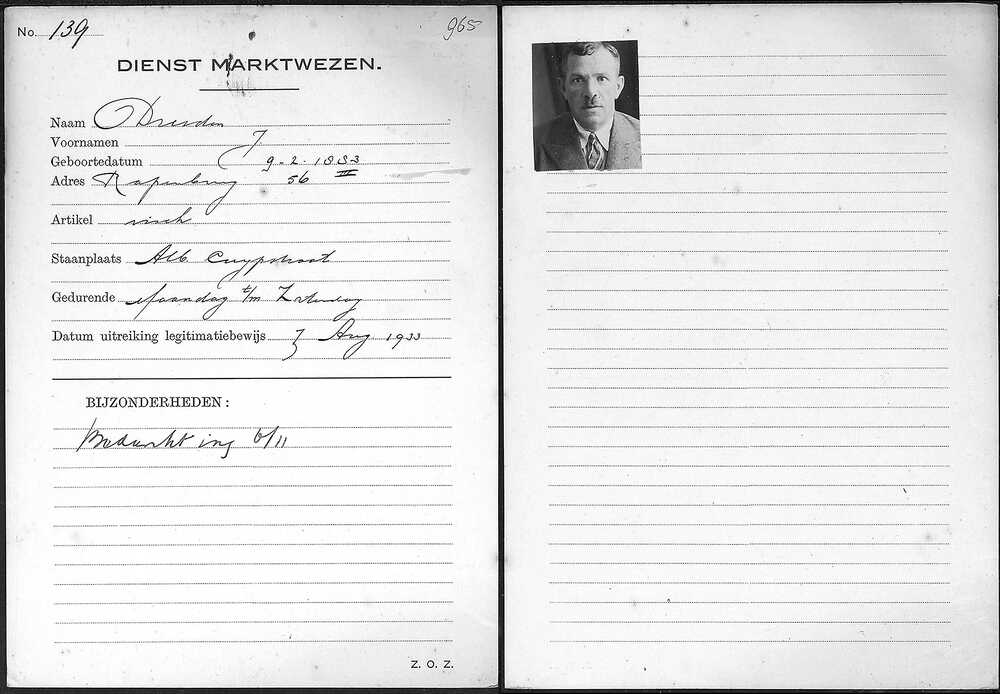 No. 139
965
DIENST MARKTWEZEN.
Naam Dresden
Voornamen J
Geboortedatum 9-2-1883
Adres Rapenburg 56 III
Artikel visch
Staanplaats Alb. Cuypstraat
Gedurende Maandag t/m Zaterdag
Datum uitreiking legitimatiebewijs 7 Aug 1933
BIJZONDERHEDEN:
ing 6/11
Z. O. Z.